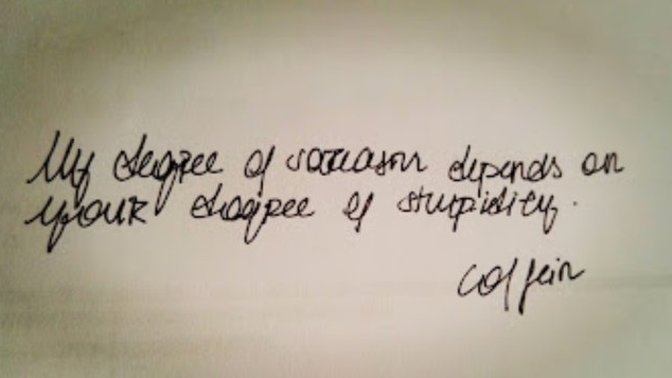 My degree of sarcasm depends on
your degree of stupidity.
Coffein